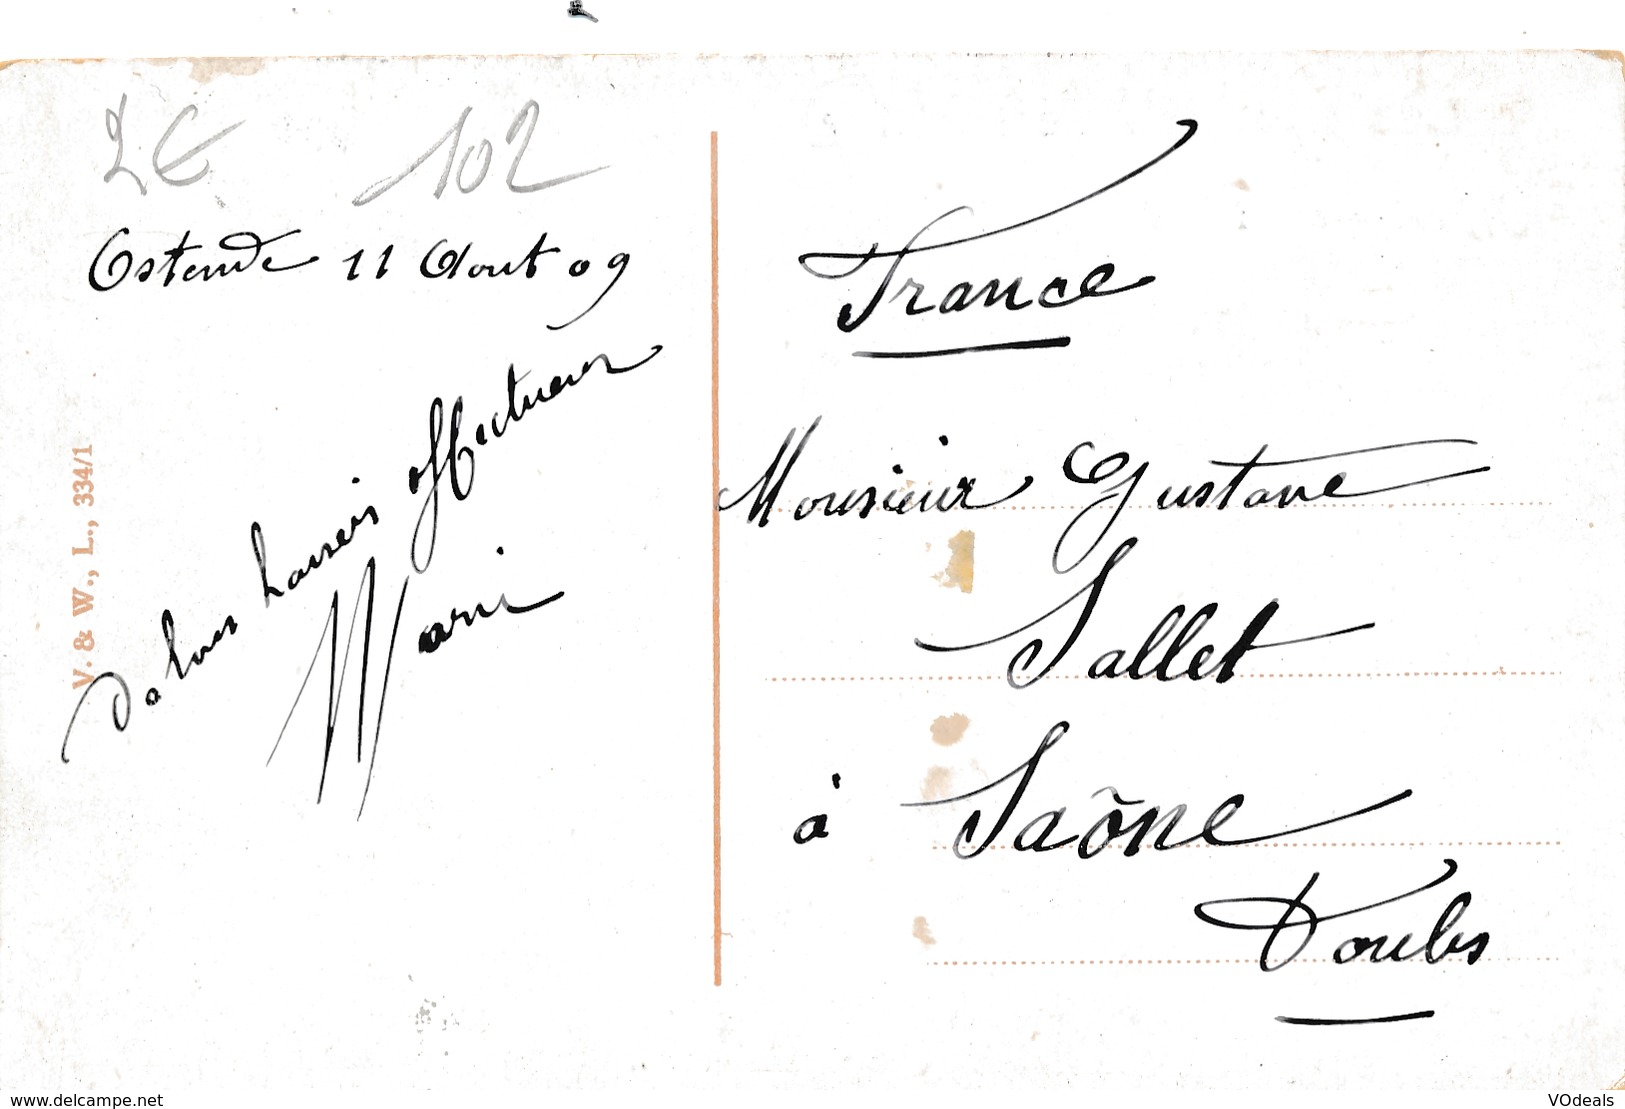 2€ 102
Ostende 11 Aout 09
Salous baisers affectueux
Marie
V. & W., L., 334/1
France
Monsieur Gustave
Sallet
à Saône
Doubs
www.delcampe.net
VOdeals